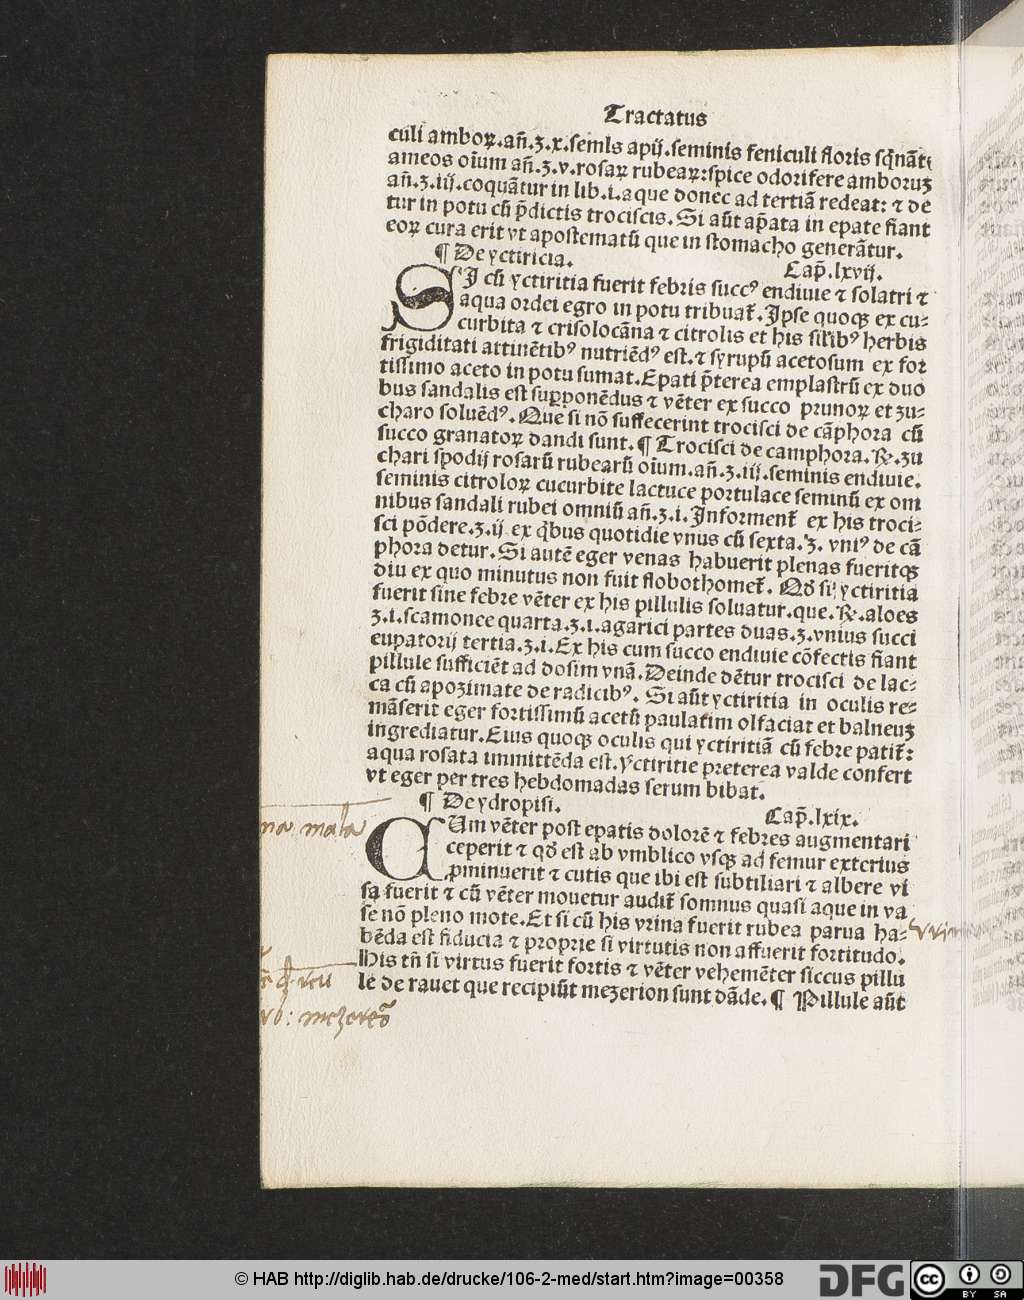 Tractatus
culi amboꝝ.an̄.ʒ.x.semĩs apij.seminis feniculi floris sq̃nãti
ameos oĩum an̄.ʒ.v.rosaꝝ rubeaꝝ:spice odorifere amboruʒ
an̄.ʒ.iij.coquãtur in lib.i.aque donec ad tertiã redeat: ⁊ de
tur in potu cũ p̃dictis trociscis. Si aũt ap̃ata in epate fiant
eoꝝ cura erit vt apostematũ que in stomacho generãtur.
¶ De yctiricia. Cap̃.lxvij.
SI cũ yctiritia fuerit febris succꝰ endiuie ⁊ solatri ⁊
aqua ordei egro in potu tribuat̃. Ipse quoqꝫ ex cu⸗
curbita ⁊ crisolocãna ⁊ citrolis et his sil̃ibꝰ herbis
frigiditati attinẽtibꝰ nutriẽdꝰ est.⁊ syrupũ acetosum ex for
tissimo aceto in potu sumat. Epati p̃terea emplastrũ ex duo
bus sandalis est suꝑponẽdus ⁊ vẽter ex succo prunoꝝ et zu⸗
charo soluẽdꝰ. Que si nõ suffecerint trocisci de cãphora cũ
succo granatoꝝ dandi sunt. ¶ Trocisci de camphora. ℞. zu
chari spodij rosarũ rubearũ oĩum.an̄.ʒ.iij.seminis endiuie.
seminis citroloꝝ cucurbite lactuce portulace seminũ ex om
nibus sandali rubei omniũ an̄.ʒ.i. Informent̃ ex his troci⸗
sci põdere.ʒ.ij. ex q̃bus quotidie vnus cũ sexta.ʒ. vniꝰ de cã
phora detur. Si autẽ eger venas habuerit plenas fueritqꝫ
diu ex quo minutus non fuit flobothomet̃. Qđ si yctiritia
fuerit sine febre vẽter ex his pillulis soluatur.que.℞.aloes
ʒ.i.scamonee quarta.ʒ.i.agarici partes duas.ʒ.vnius succi
eupatorij tertia.ʒ.i. Ex his cum succo endiuie cõfectis fiant
pillule sufficiẽt ad dosim vnã. Deinde dẽtur trocisci de lac⸗
ca cũ apozimate de radicibꝰ. Si aũt yctiritia in oculis re⸗
mãserit eger fortissimũ acetũ paulatim olfaciat et balneuʒ
ingrediatur. Eius quoqꝫ oculis qui yctiritiã cũ febre patit̃:
aqua rosata immittẽda est. Yctiritie preterea valde confert
vt eger per tres hebdomadas serum bibat.
¶ De ydropisi. Cap̃.lxix.
na mala
CUm vẽter post epatis dolorẽ ⁊ febres augmentari
ceperit ⁊ qđ est ab vmblico vsqꝫ ad femur exterius
ꝓminuerit ⁊ cutis que ibi est subtiliari ⁊ albere vi
sa fuerit ⁊ cũ vẽter mouetur audit̃ somnus quasi aque in va
se nõ pleno mote. Et si cũ his vrina fuerit rubea parua ha⸗
bẽda est fiducia ⁊ proprie si virtutis non affuerit fortitudo.
His tñ si virtus fuerit fortis ⁊ vẽter vehemẽter siccus pillu
le de rauet que recipiũt mezerion sunt dãde. ¶ Pillule aũt
© HAB http://diglib.hab.de/drucke/106-2-med/start.htm?image=00358
DFG
cc
BY SA